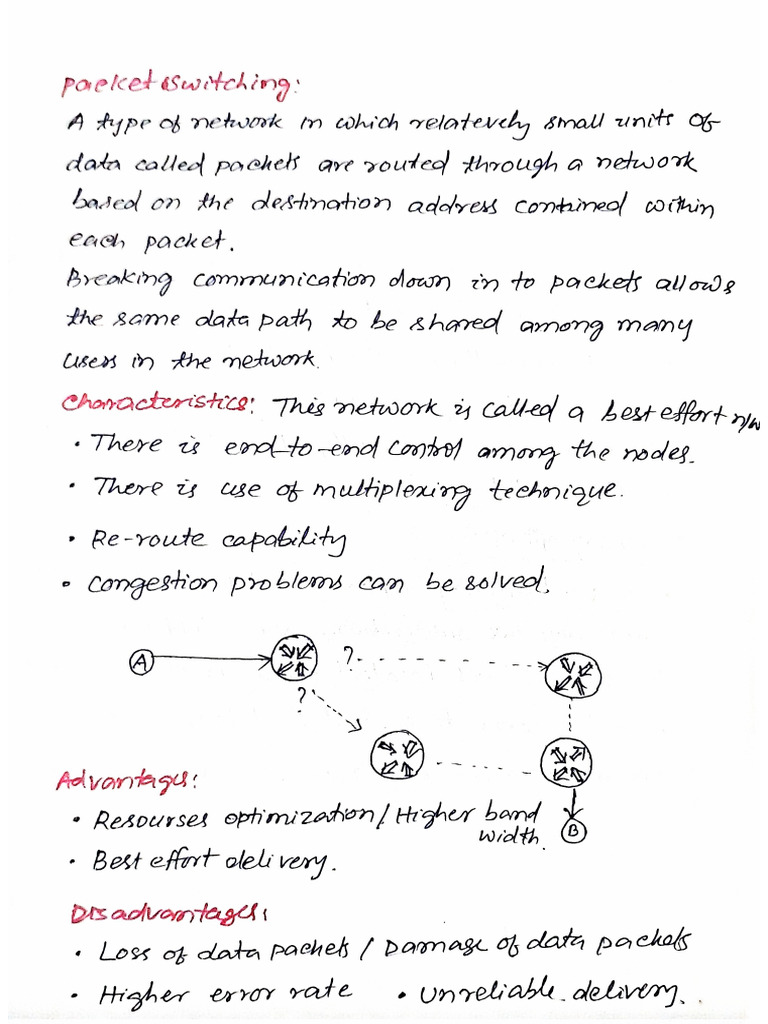 Packet switching:
A type of network in which relatevely small units of
data called packets are routed through a network
based on the destination address contined within
each packet.
Breaking communication down in to packets allows
the same data path to be shared among many
users in the network.
Characteristics: This network is called a best effort n/w
• There is end-to-end control among the nodes.
• There is use of multiplexing technique.
• Re-route capability
• Congestion problems can be solved.
A ?
?
Advantages:
• Resourses optimization / Higher band
width.
B
• Best effort delivery.
Disadvantages:
• Loss of data packets / Damage of data packets
• Higher error rate • Unreliable delivery.